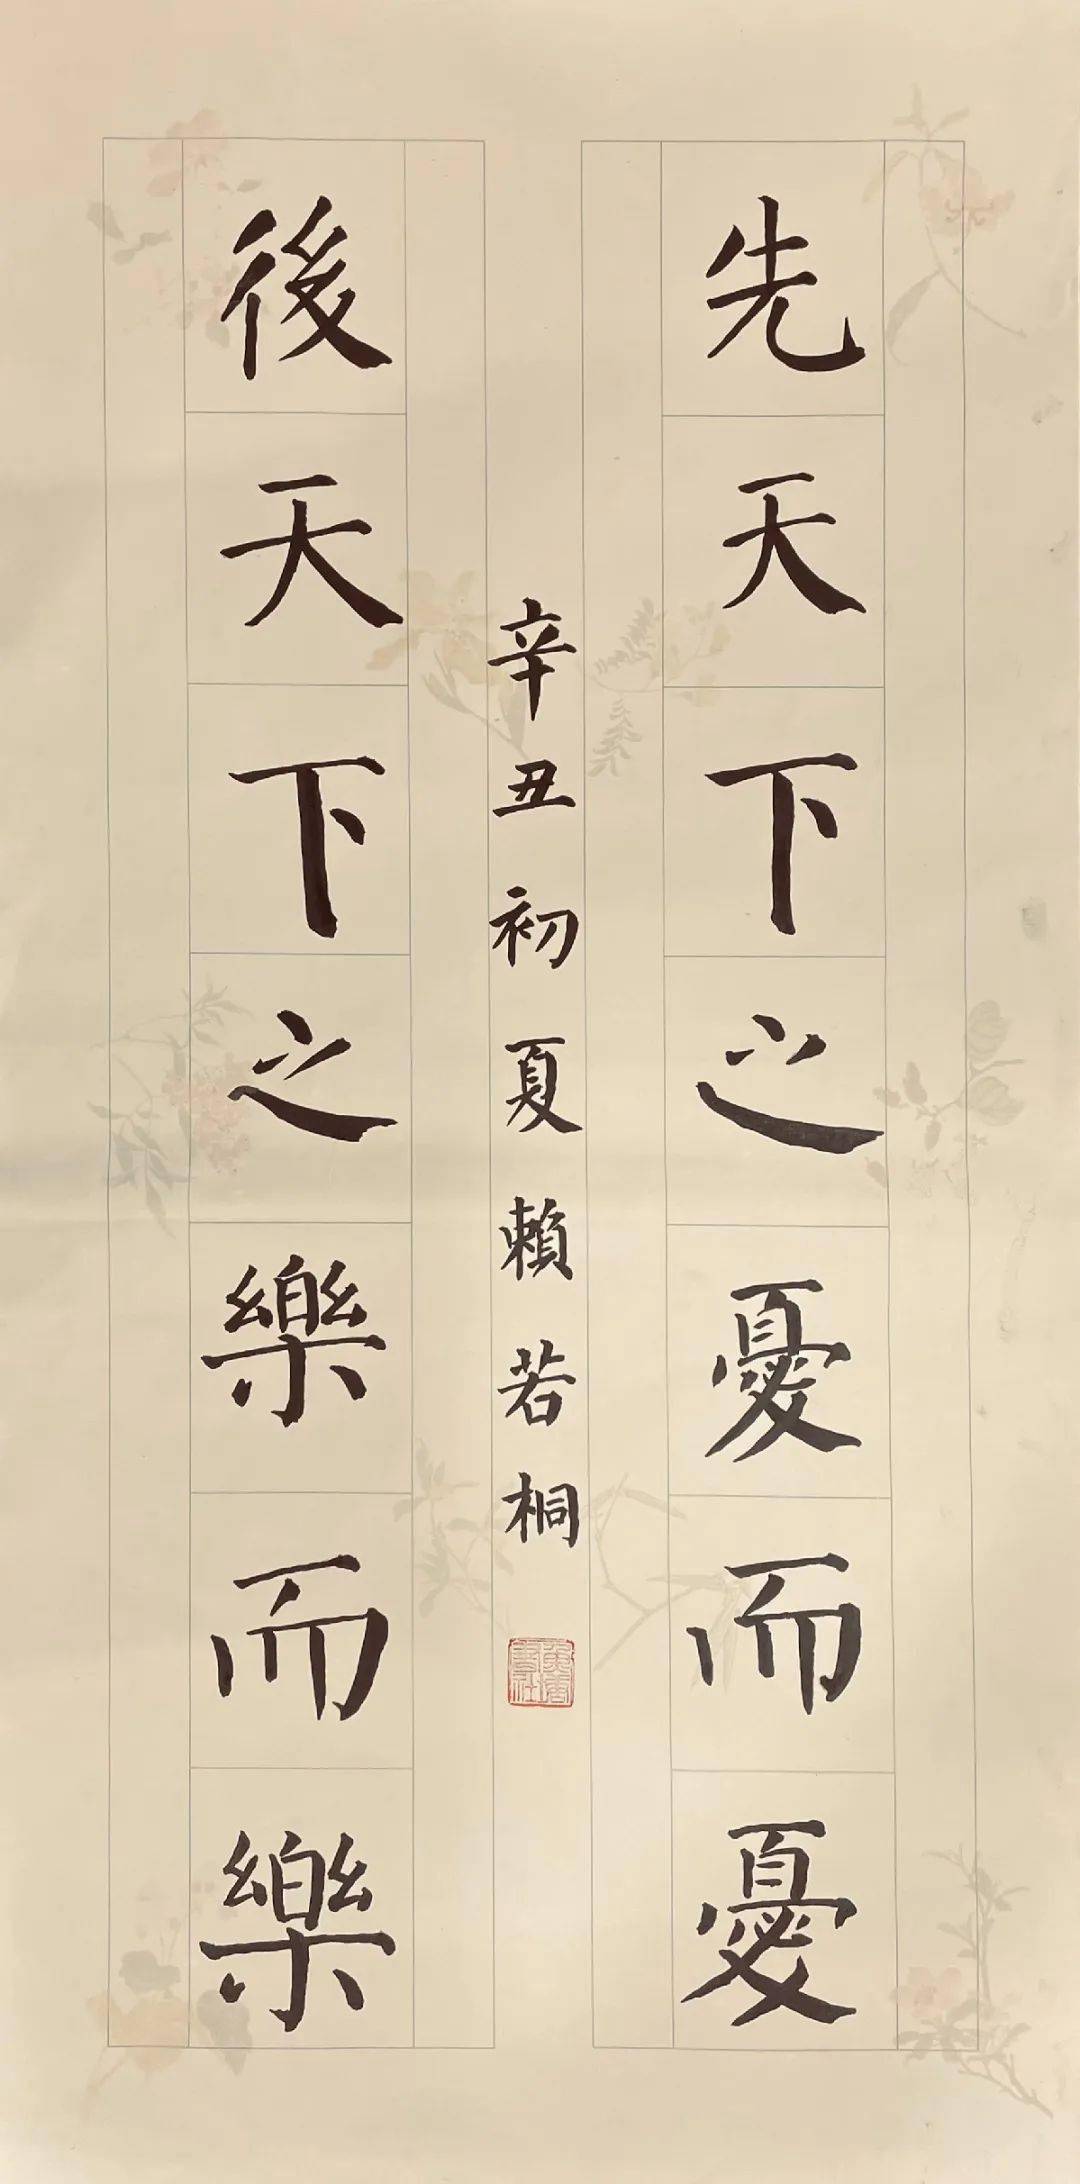 先天下之憂而憂
後天下之樂而樂
辛丑初夏賴若桐